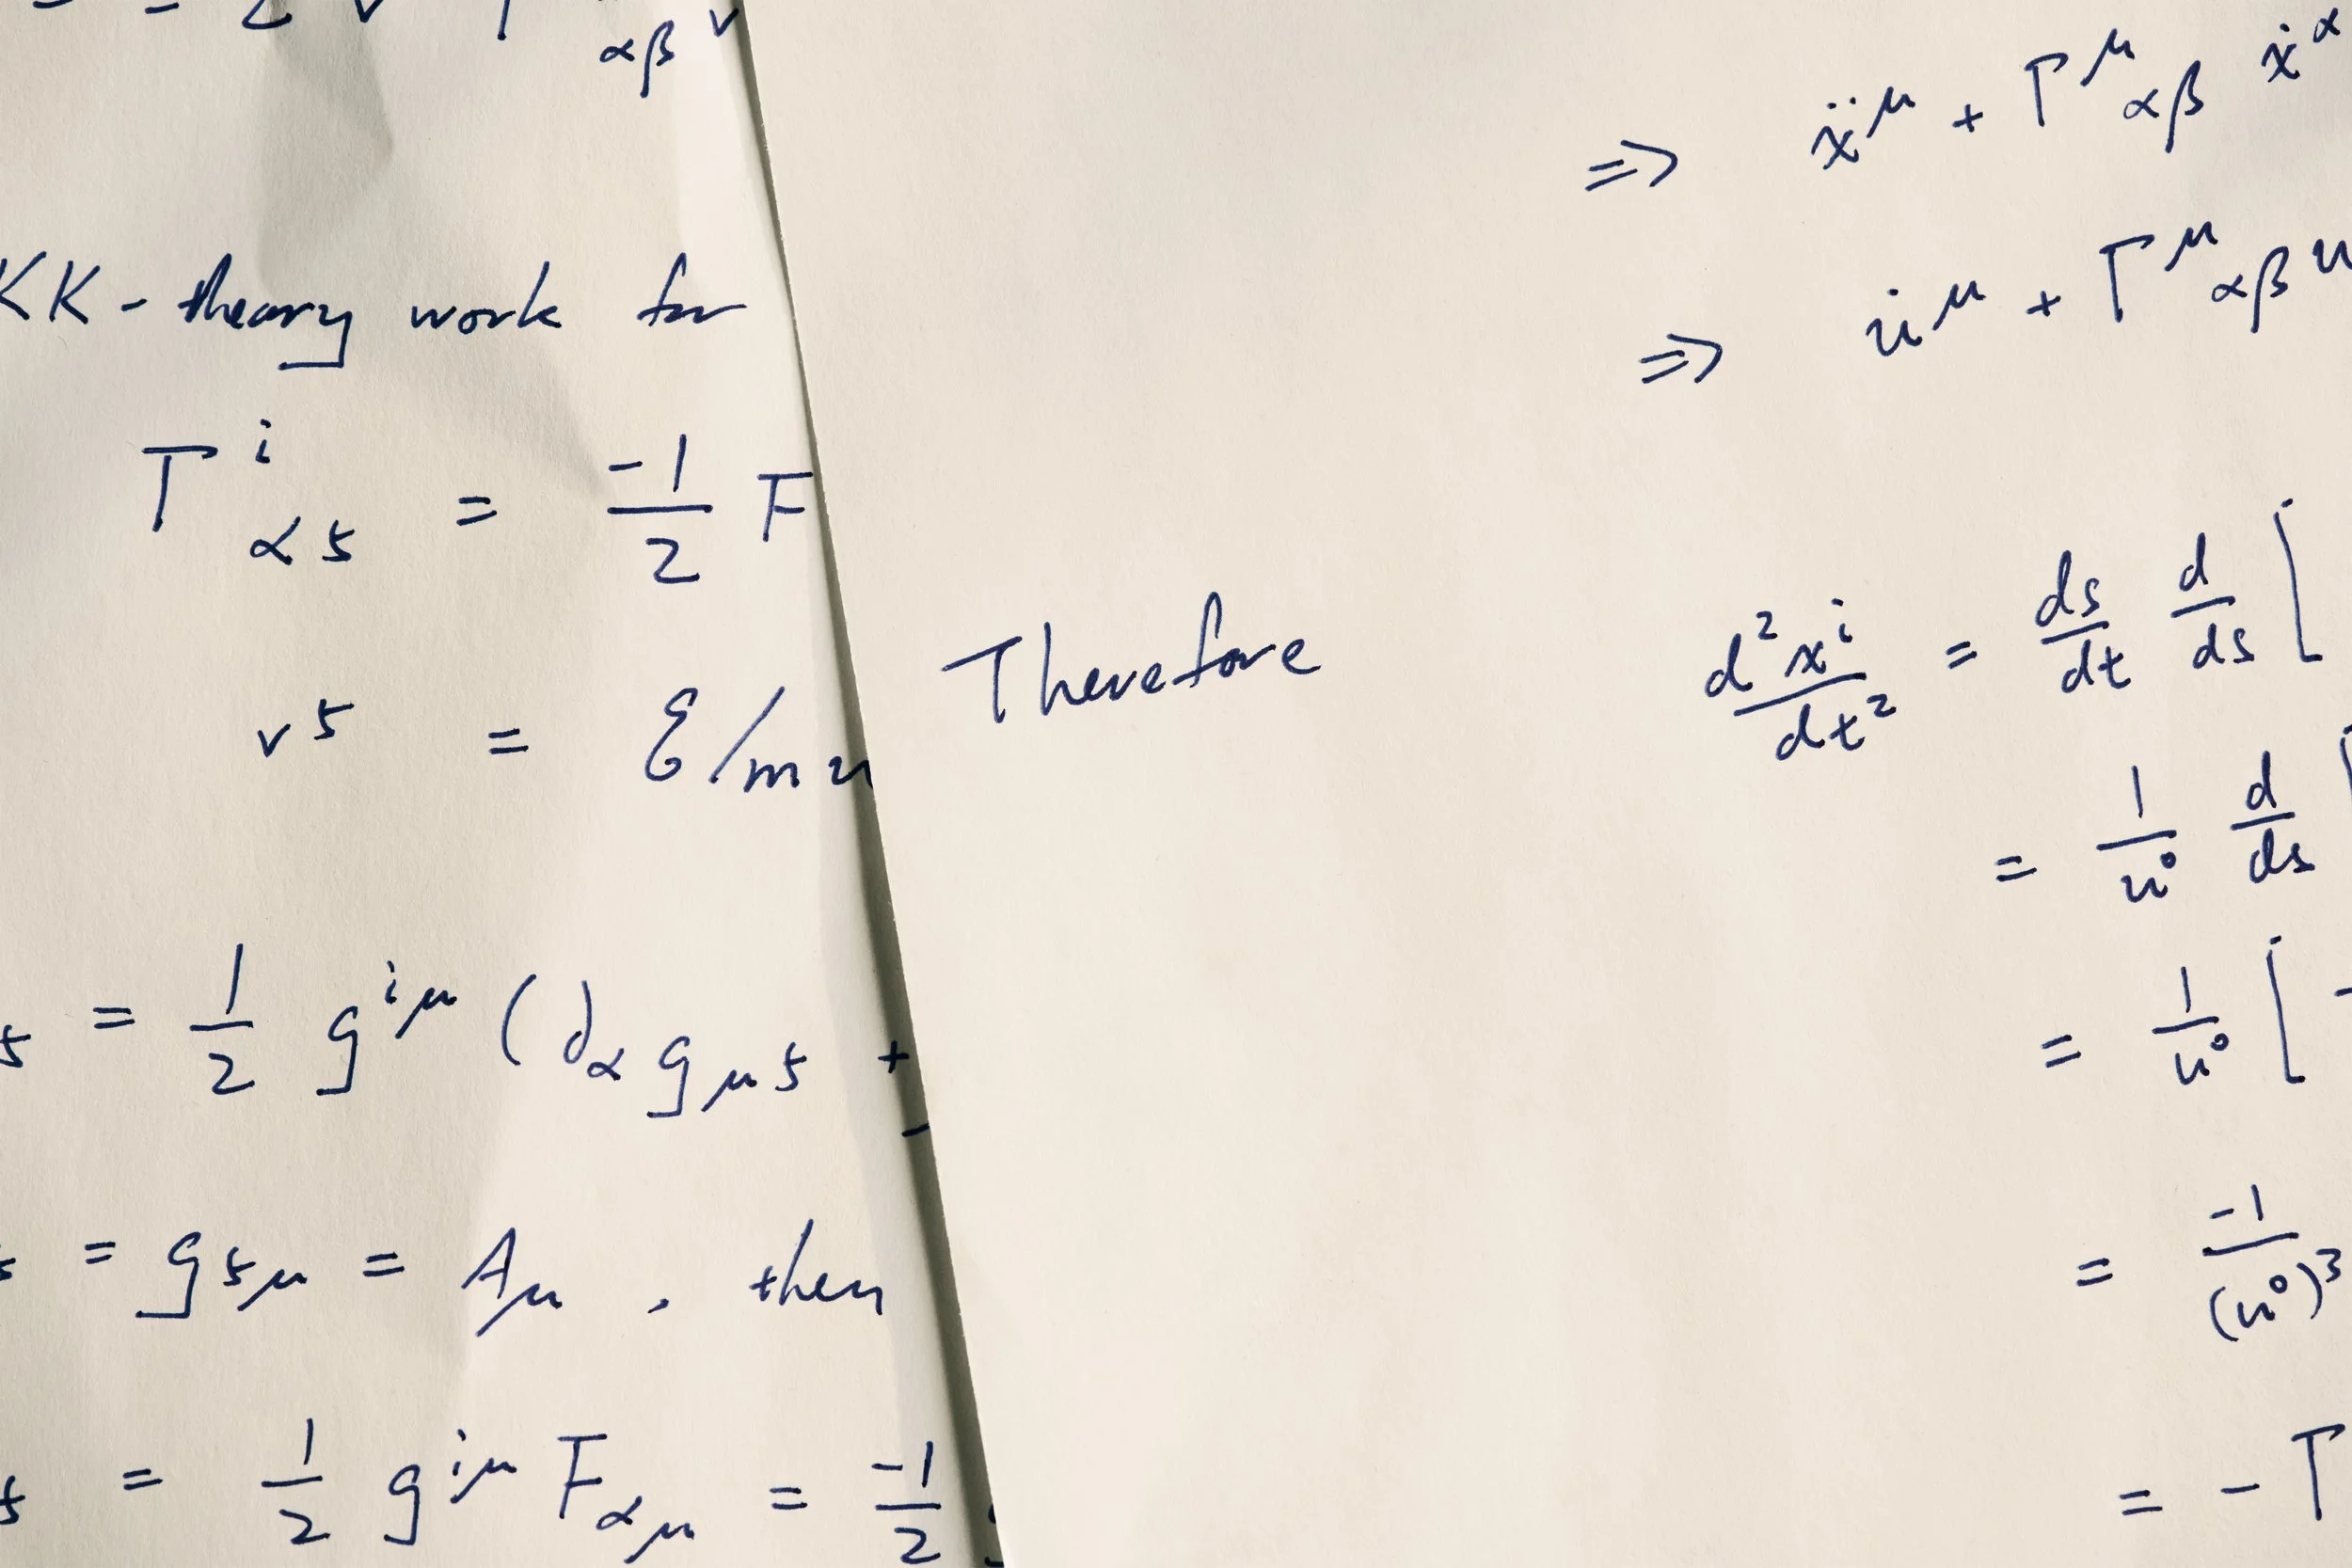 αβ v
KK - theory work for
Γ^i_{α5} = -1/2 F
v^5 = ε/m u
5 = 1/2 g^{iμ} (∂_α g_{μ5} +
= g_{5μ} = A_μ , then
5 = 1/2 g^{iμ} F_{αμ} = -1/2
⇒ ẍ^μ + Γ^μ_{αβ} ẋ^α
⇒ u̇^μ + Γ^μ_{αβ} u
Therefore d²x^i/dt² = ds/dt d/ds [
= 1/u⁰ d/ds
= 1/u⁰ [
= -1/(u⁰)³
= - Γ